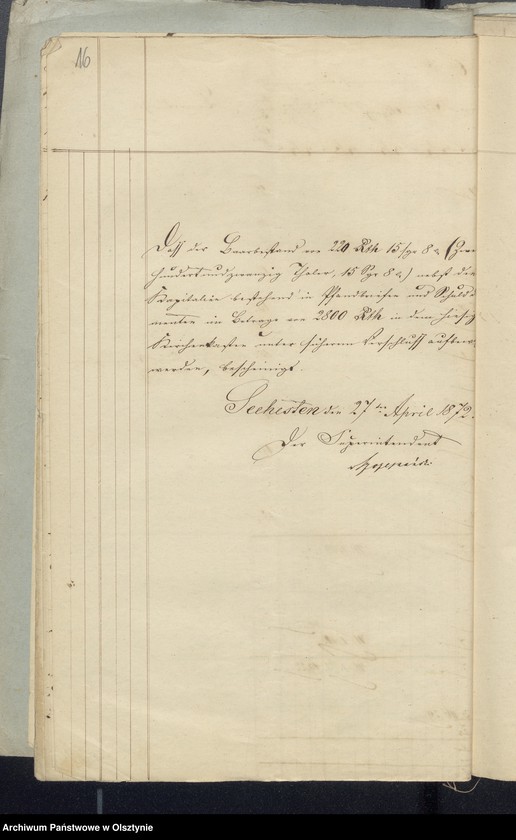 16
Daß der Baarbestand von 220 Rth 15 sgr 8 d (Zwei
hundertundzwanzig Thaler, 15 Sgr 8 d) nebst den
Kapitalien bestehend in Pfandbriefen und Schuld
menten im Betrage von 2800 Rth in dem hiesig
Kirchenkasten unter sicherem Verschluß aufbew
werden, bescheinigt.
Seehesten den 27ten April 1872.
Der Superintendent
Archiwum Państwowe w Olsztynie